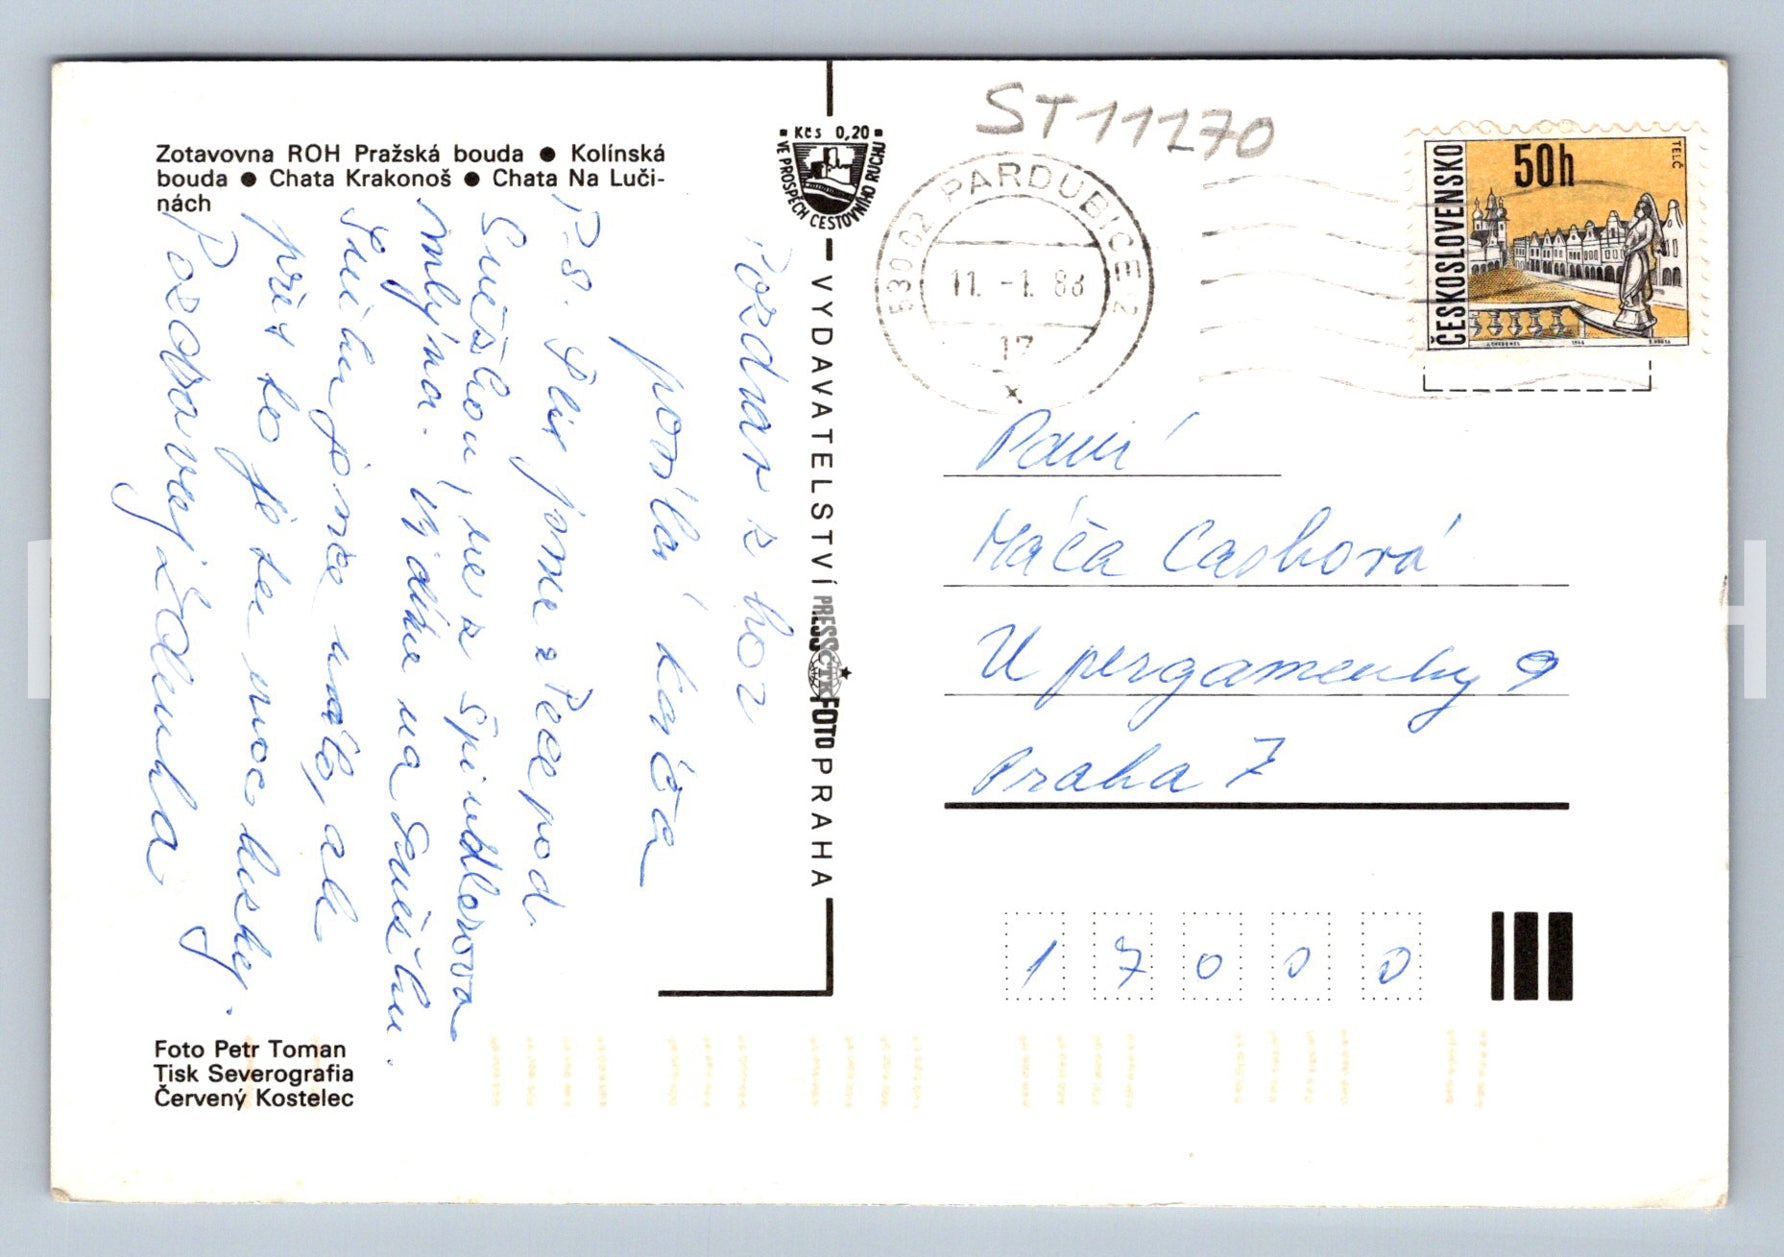 Zotavovna ROH Pražská bouda ● Kolínská
bouda ● Chata Krakonoš ● Chata Na Luči-
nách
Pozdrav z hor
posílá Káča
P.S. Šli jsme z Pece pod
Sněžkou, ne z Špindlerova
mlýna. Vyjdme na Sněžku.
Sněhu je sice málo, ale
při to je tu moc hezky.
Pozdravuj Zdeňka
Foto Petr Toman
Tisk Severografia
Červený Kostelec
Kčs 0,20
VE PROSPĚCH CESTOVNÍHO RUCHU
VYDAVATELSTVÍ PRESSFOTO PRAHA
ČTK
ST11270
53002 PARDUBICE 2
11.-1. 88
17
ČESKOSLOVENSKO
50h
TELČ
1966
Paní
Káča Cashová
U pergamenky 9
Praha 7
17000